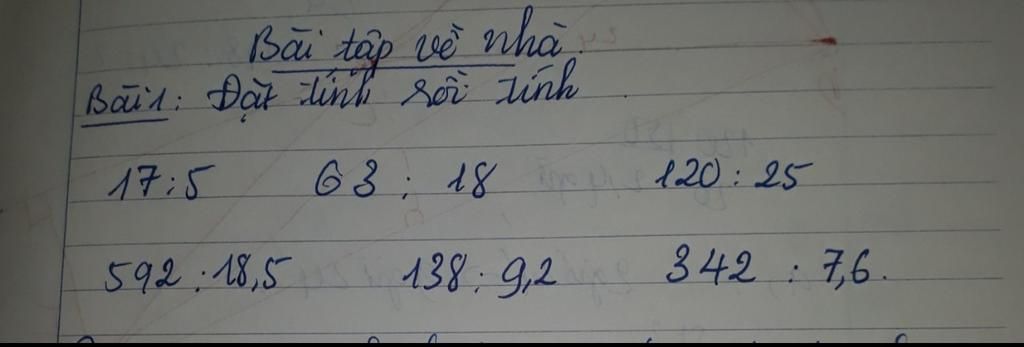 Bài tập về nhà.
Bài 1: Đặt tính rồi tính.
17:5 63 : 18 120 : 25
592 : 18,5 138 : 9,2 342 : 7,6.